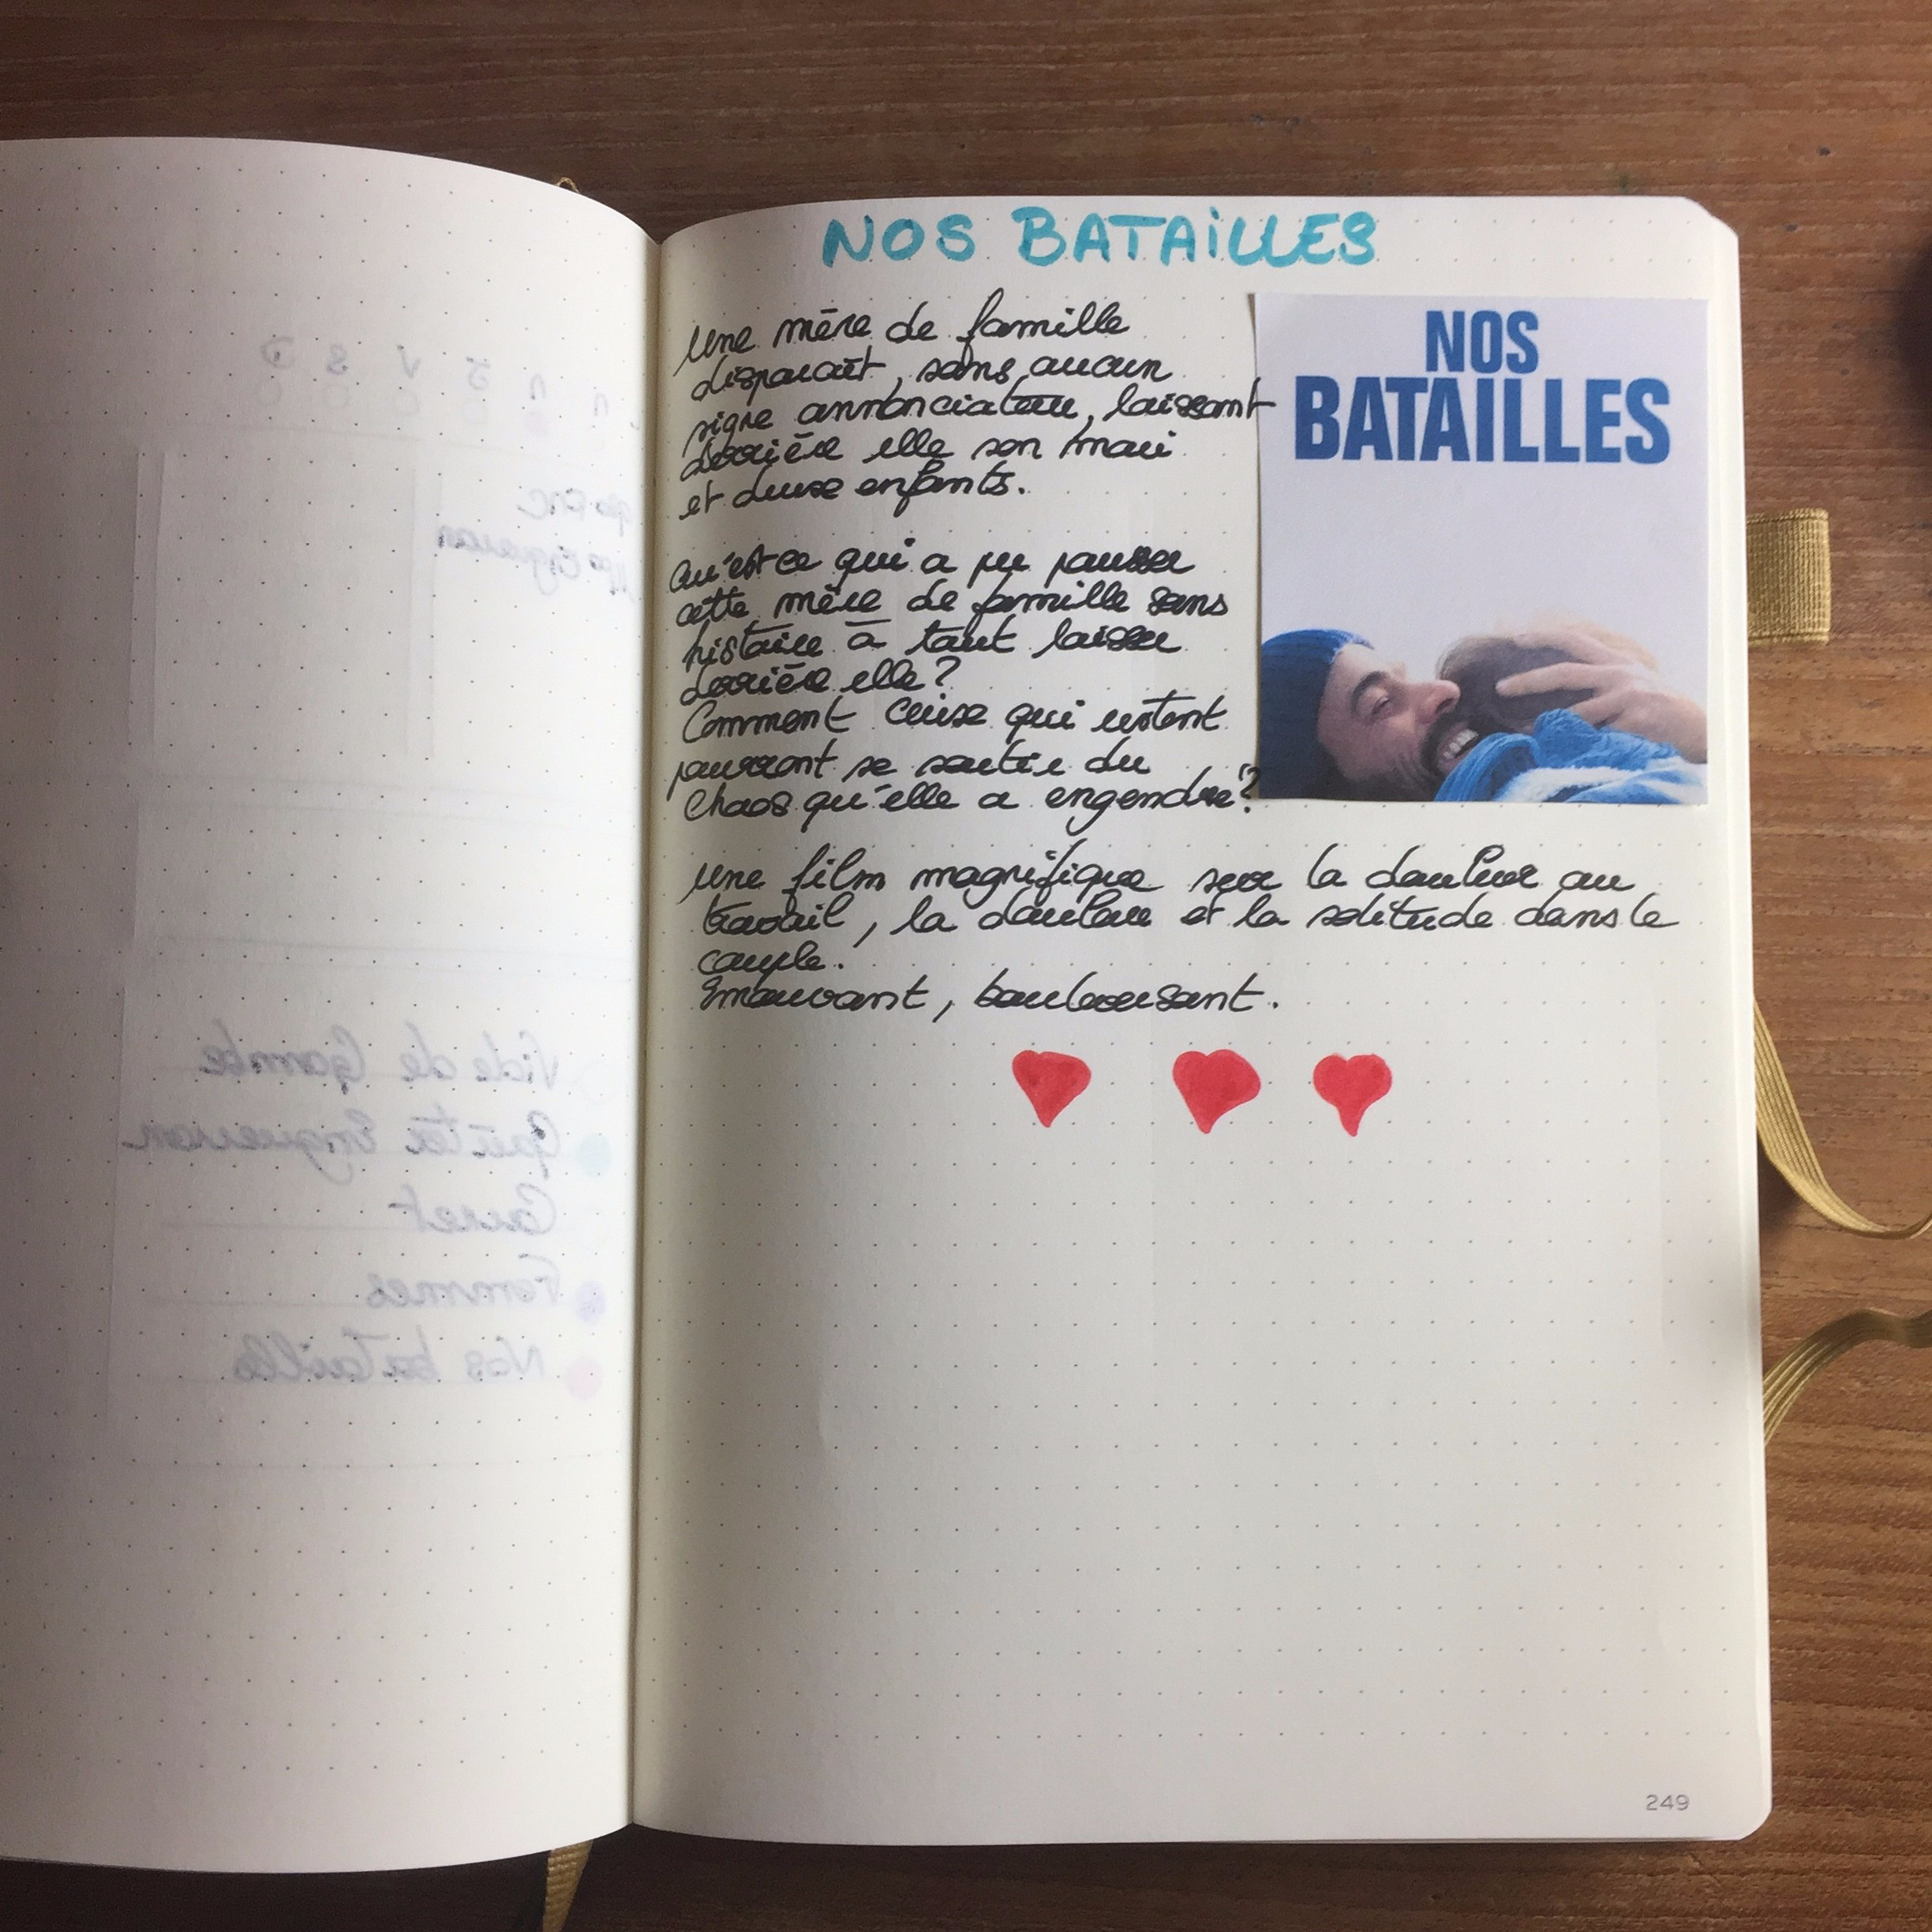 NOS BATAILLES
Une mère de famille
disparaît, sans aucun
signe annonciateur, laissant
derrière elle son mari
et deux enfants.
Qu'est-ce qui a pu pousser
cette mère de famille sans
histoire à tout laisser
derrière elle?
Comment ceux qui restent
pourront se sortir du
chaos qu'elle a engendré?
Une film magnifique sur la douleur au
travail, la douleur et la solitude dans le
couple.
Emouvant, bouleversant.
NOS
BATAILLES
249
Vide de Gambe
Carnet
Femmes
Nos batailles